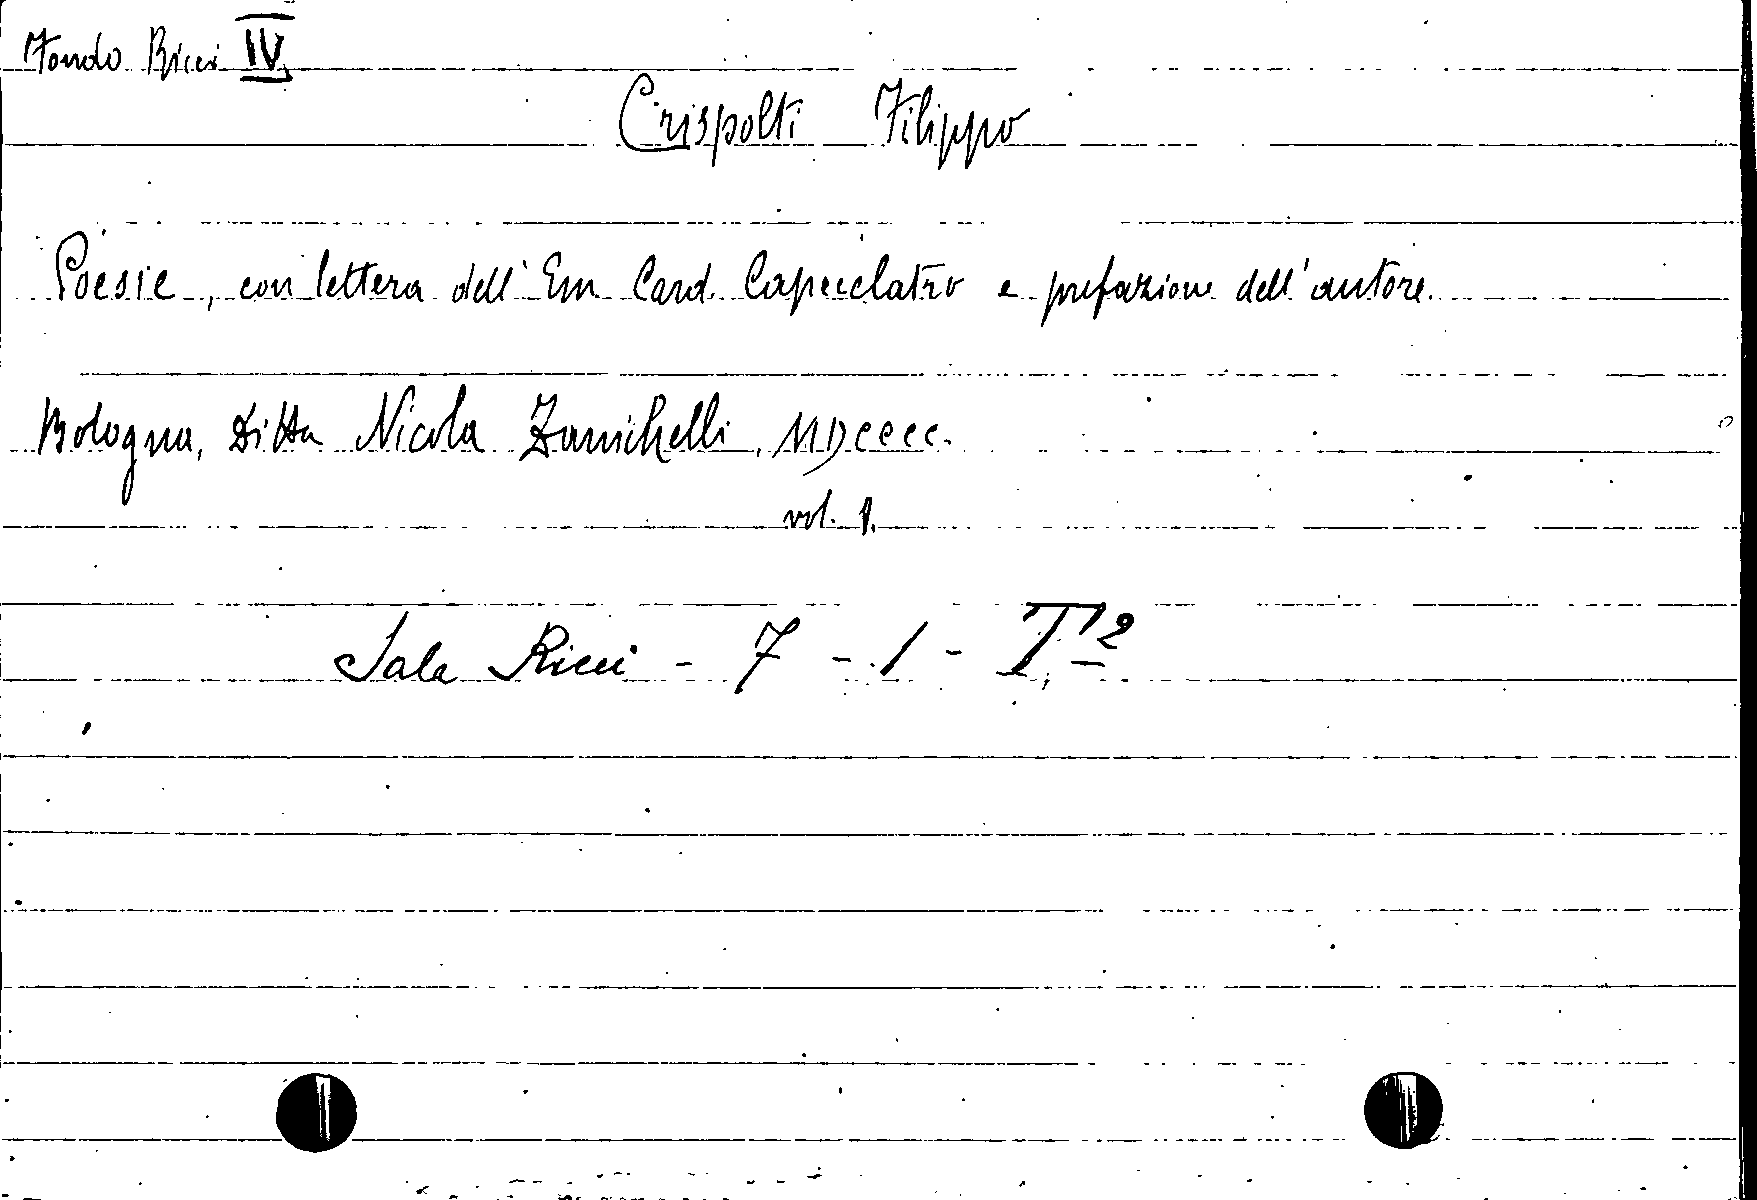 Fondo Ricci IV
Crispolti Filippo
Poesie, con lettera dell'Em Card. Capecelatro e prefazione dell'autore.
Bologna, Ditta Nicola Zanichelli, MDCCCC.
vol. 1.
Sala Ricci - 7 - 1 - T 2